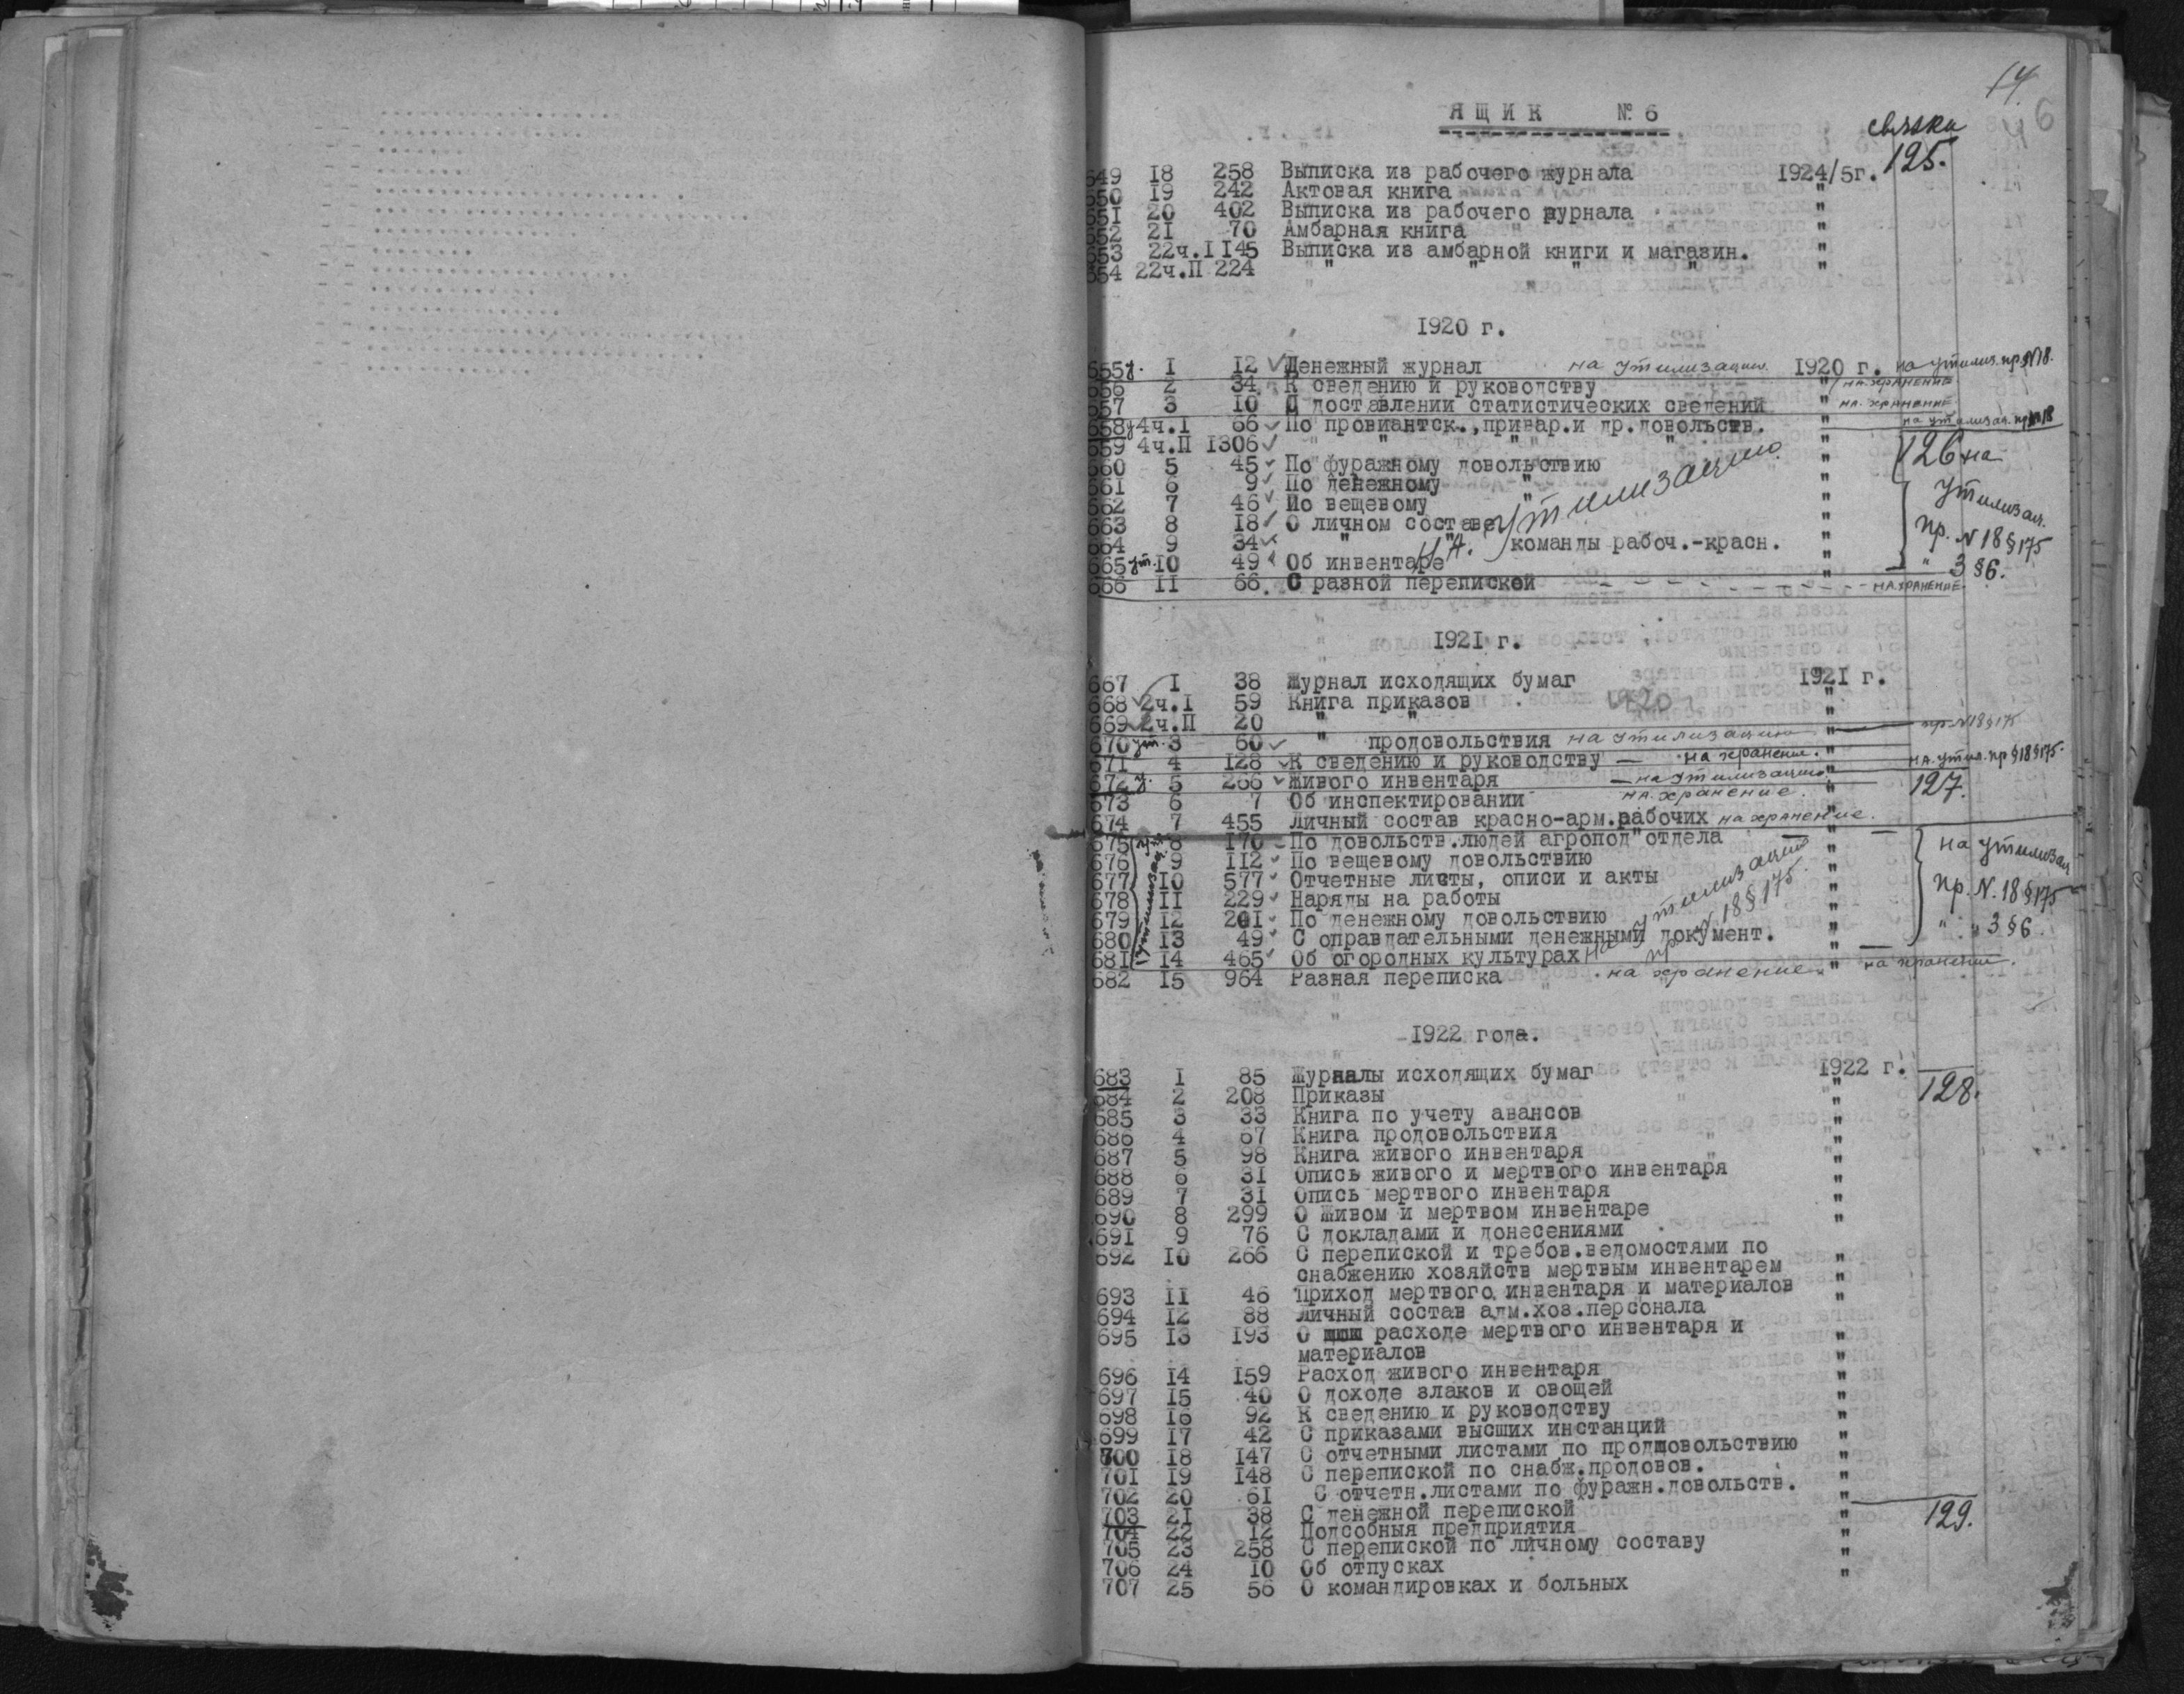 14.
6
ЯЩИК № 6
связка
125.
649 18 258 Выписка из рабочего журнала 1924/5г.
650 19 242 Актовая книга "
651 20 402 Выписка из рабочего журнала "
652 21 70 Амбарная книга "
653 22ч.I 145 Выписка из амбарной книги и магазин. "
654 22ч.II 224 " " " " "
1920 г.
655 у. 1 12 Денежный журнал на утилизацию 1920 г. на утилиз. пр. №18.
656 2 34 К сведению и руководству " на хранение
657 3 10 О доставлении статистических сведений " на хранение
658 у 4ч.I 66 По провиантск.,привар.и др.довольств. " на утилизац. пр №18
659 4ч.II 1306 " " " " " 126 на
660 5 45 По фуражному довольствию "
661 6 9 По денежному " " утилизац.
662 7 46 По вещевому "
663 8 18 О личном составе " пр. №18 §175
664 9 34 " " команды рабоч.-красн. "
на утилизацию.
665 ут. 10 49 Об инвентаре " " 3 §6.
666 11 66 С разной перепиской " на хранение.
1921 г.
667 1 38 Журнал исходящих бумаг 1921 г.
668 2ч.I 59 Книга приказов 1920 г "
669 2ч.II 20 " " "
670 ут. 3 60 " продовольствия на утилизацию " пр №18 §175
671 4 128 К сведению и руководству — на хранение. "
672 у. 5 266 Живого инвентаря — на утилизацию " на утил. пр §18 §175.
673 6 7 Об инспектировании на хранение. " 127.
674 7 455 Личный состав красно-арм.рабочих на хранение. "
675 8 170 По довольств.людей агропод"отдела "
676 9 112 По вещевому довольствию " на утилизац
677 10 577 Отчетные листы, описи и акты "
678 11 229 Наряды на работы " пр. №.18 §175
679 12 201 По денежному довольствию "
680 13 49 С оправдательными денежными документ. " " " 3 §6.
681 14 465 Об огородных культурах "
на утилизацию
пр. № 18 §175.
682 15 964 Разная переписка на хранение " на хранение.
1922 года.
683 1 85 Журналы исходящих бумаг 1922 г.
684 2 208 Приказы " 128.
685 3 33 Книга по учету авансов "
686 4 67 Книга продовольствия "
687 5 98 Книга живого инвентаря "
688 6 31 Опись живого и мертвого инвентаря "
689 7 31 Опись мертвого инвентаря "
690 8 299 О живом и мертвом инвентаре "
691 9 76 С докладами и донесениями
692 10 266 С перепиской и требов.ведомостями по
снабжению хозяйств мертвым инвентарем "
693 11 46 Приход мертвого инвентаря и материалов "
694 12 88 Личный состав адм.хоз.персонала "
695 13 193 О расходе мертвого инвентаря и "
материалов "
696 14 159 Расход живого инвентаря "
697 15 40 О доходе злаков и овощей "
698 16 92 К сведению и руководству "
699 17 42 С приказами высших инстанций "
700 18 147 С отчетными листами по продшовольствию "
701 19 148 С перепиской по снабж.продовов. "
702 20 61 С отчетн.листами по фуражн.довольств. "
703 21 38 С денежной перепиской "
704 22 12 Подсобныя предприятия " 129.
705 23 258 С перепиской по личному составу "
706 24 10 Об отпусках "
707 25 56 О командировках и больных "